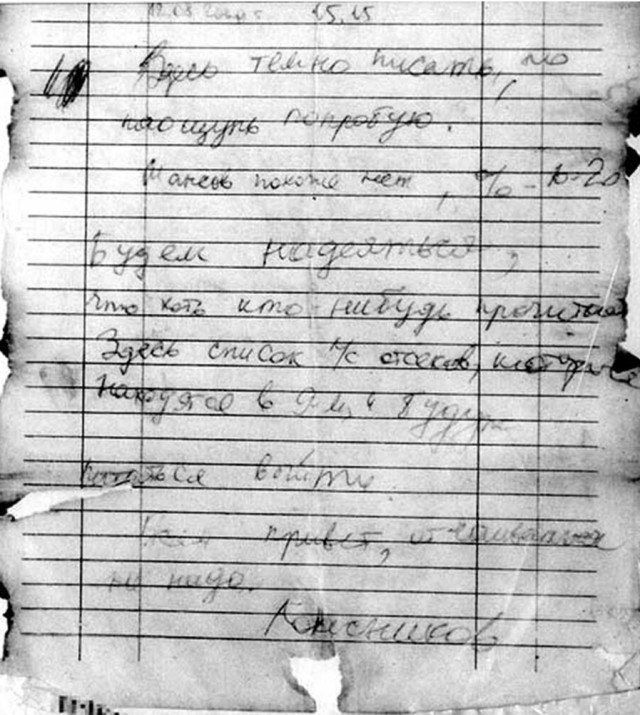 15.15
Здесь темно писать, но
наощупь попробую.
Шансов похоже нет, % 10-20
Будем надеяться,
что хоть кто-нибудь прочитает
Здесь список л/с отсеков, которые
находятся в 9-м и будут
пытаться выйти.
Всем привет, отчаиваться
не надо.
Колесников